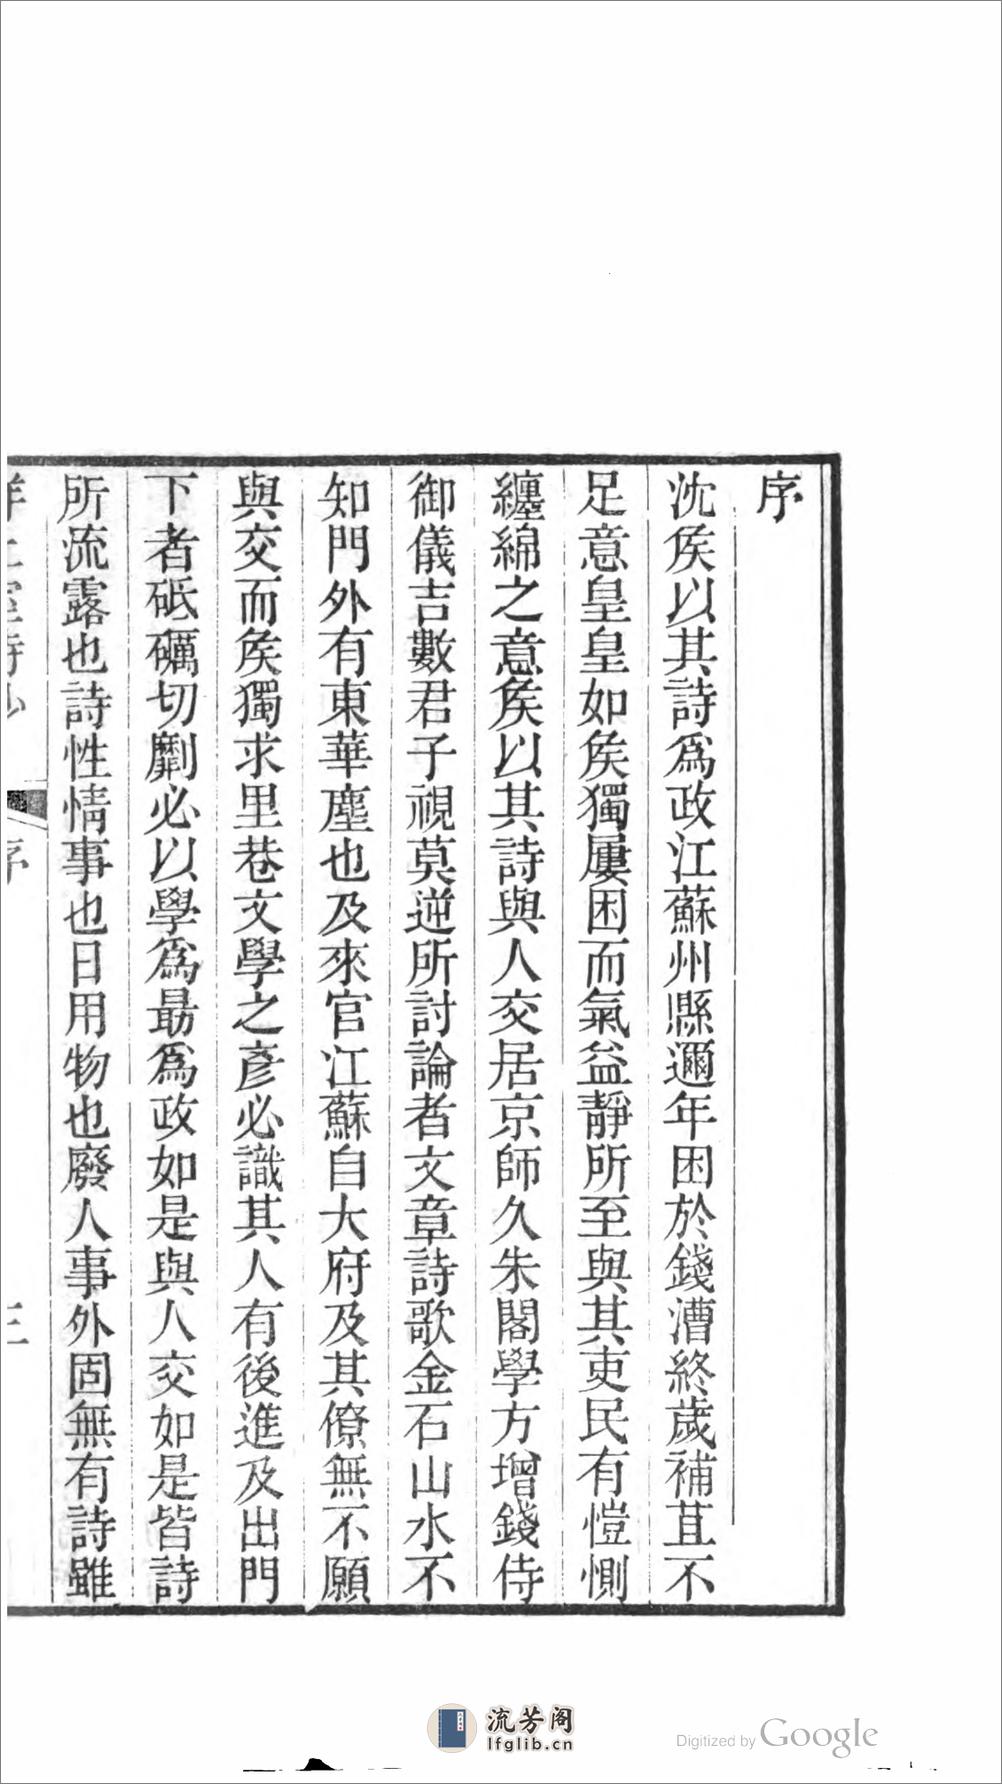 序
沈矦以其詩爲政江蘇州縣邇年困於錢漕終歲補苴不
足意皇皇如矦獨屢困而氣益靜所至與其吏民有愷惻
纏綿之意矦以其詩與人交居京師久朱閣學方增錢侍
御儀吉數君子視莫逆所討論者文章詩歌金石山水不
知門外有東華塵也及來官江蘇自大府及其僚無不願
與交而矦獨求里巷文學之彥必識其人有後進及出門
下者砥礪切劘必以學爲最爲政如是與人交如是皆詩
所流露也詩性情事也日用物也廢人事外固無有詩雖
序
三
流芳阁
lfglib.cn
Digitized by Google